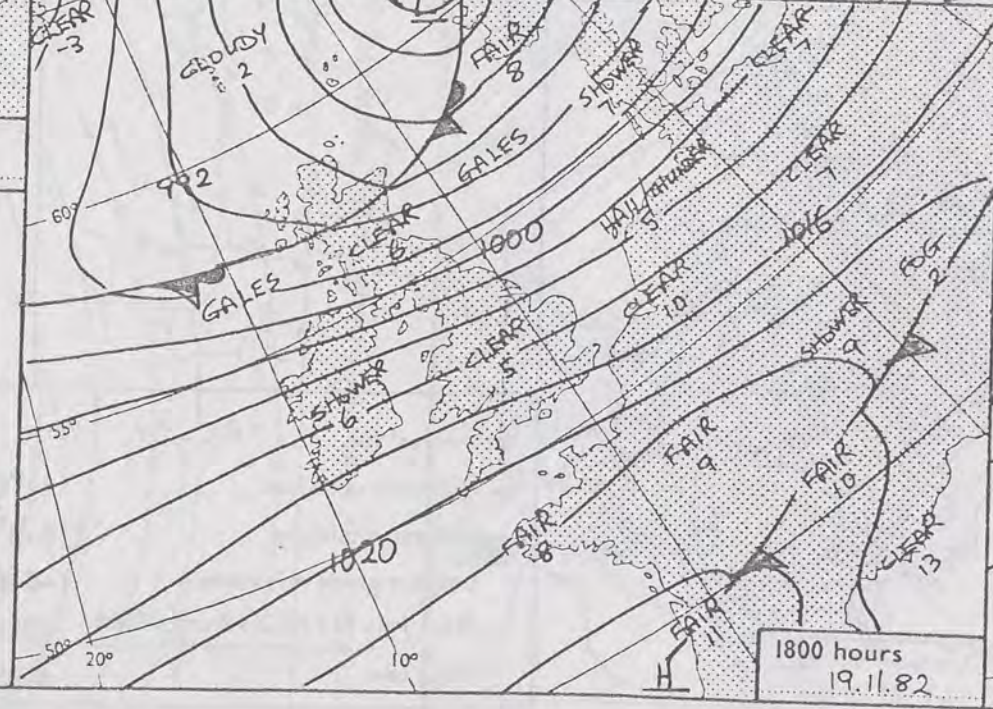 CLEAR
-3
CLOUDY
2
L
FAIR
8
SHOWER
7
CLEAR
7
GALES
992
60°
CLEAR
6
1000
HAIL/THUNDER
5
CLEAR
7
1016
FOG
2
GALES
CLEAR
10
SHOWER
9
CLEAR
5
SHOWER
6
55°
FAIR
9
FAIR
10
1020
FAIR
8
CLEAR
13
FAIR
11
50°
20°
10°
H
1800 hours
19.11.82